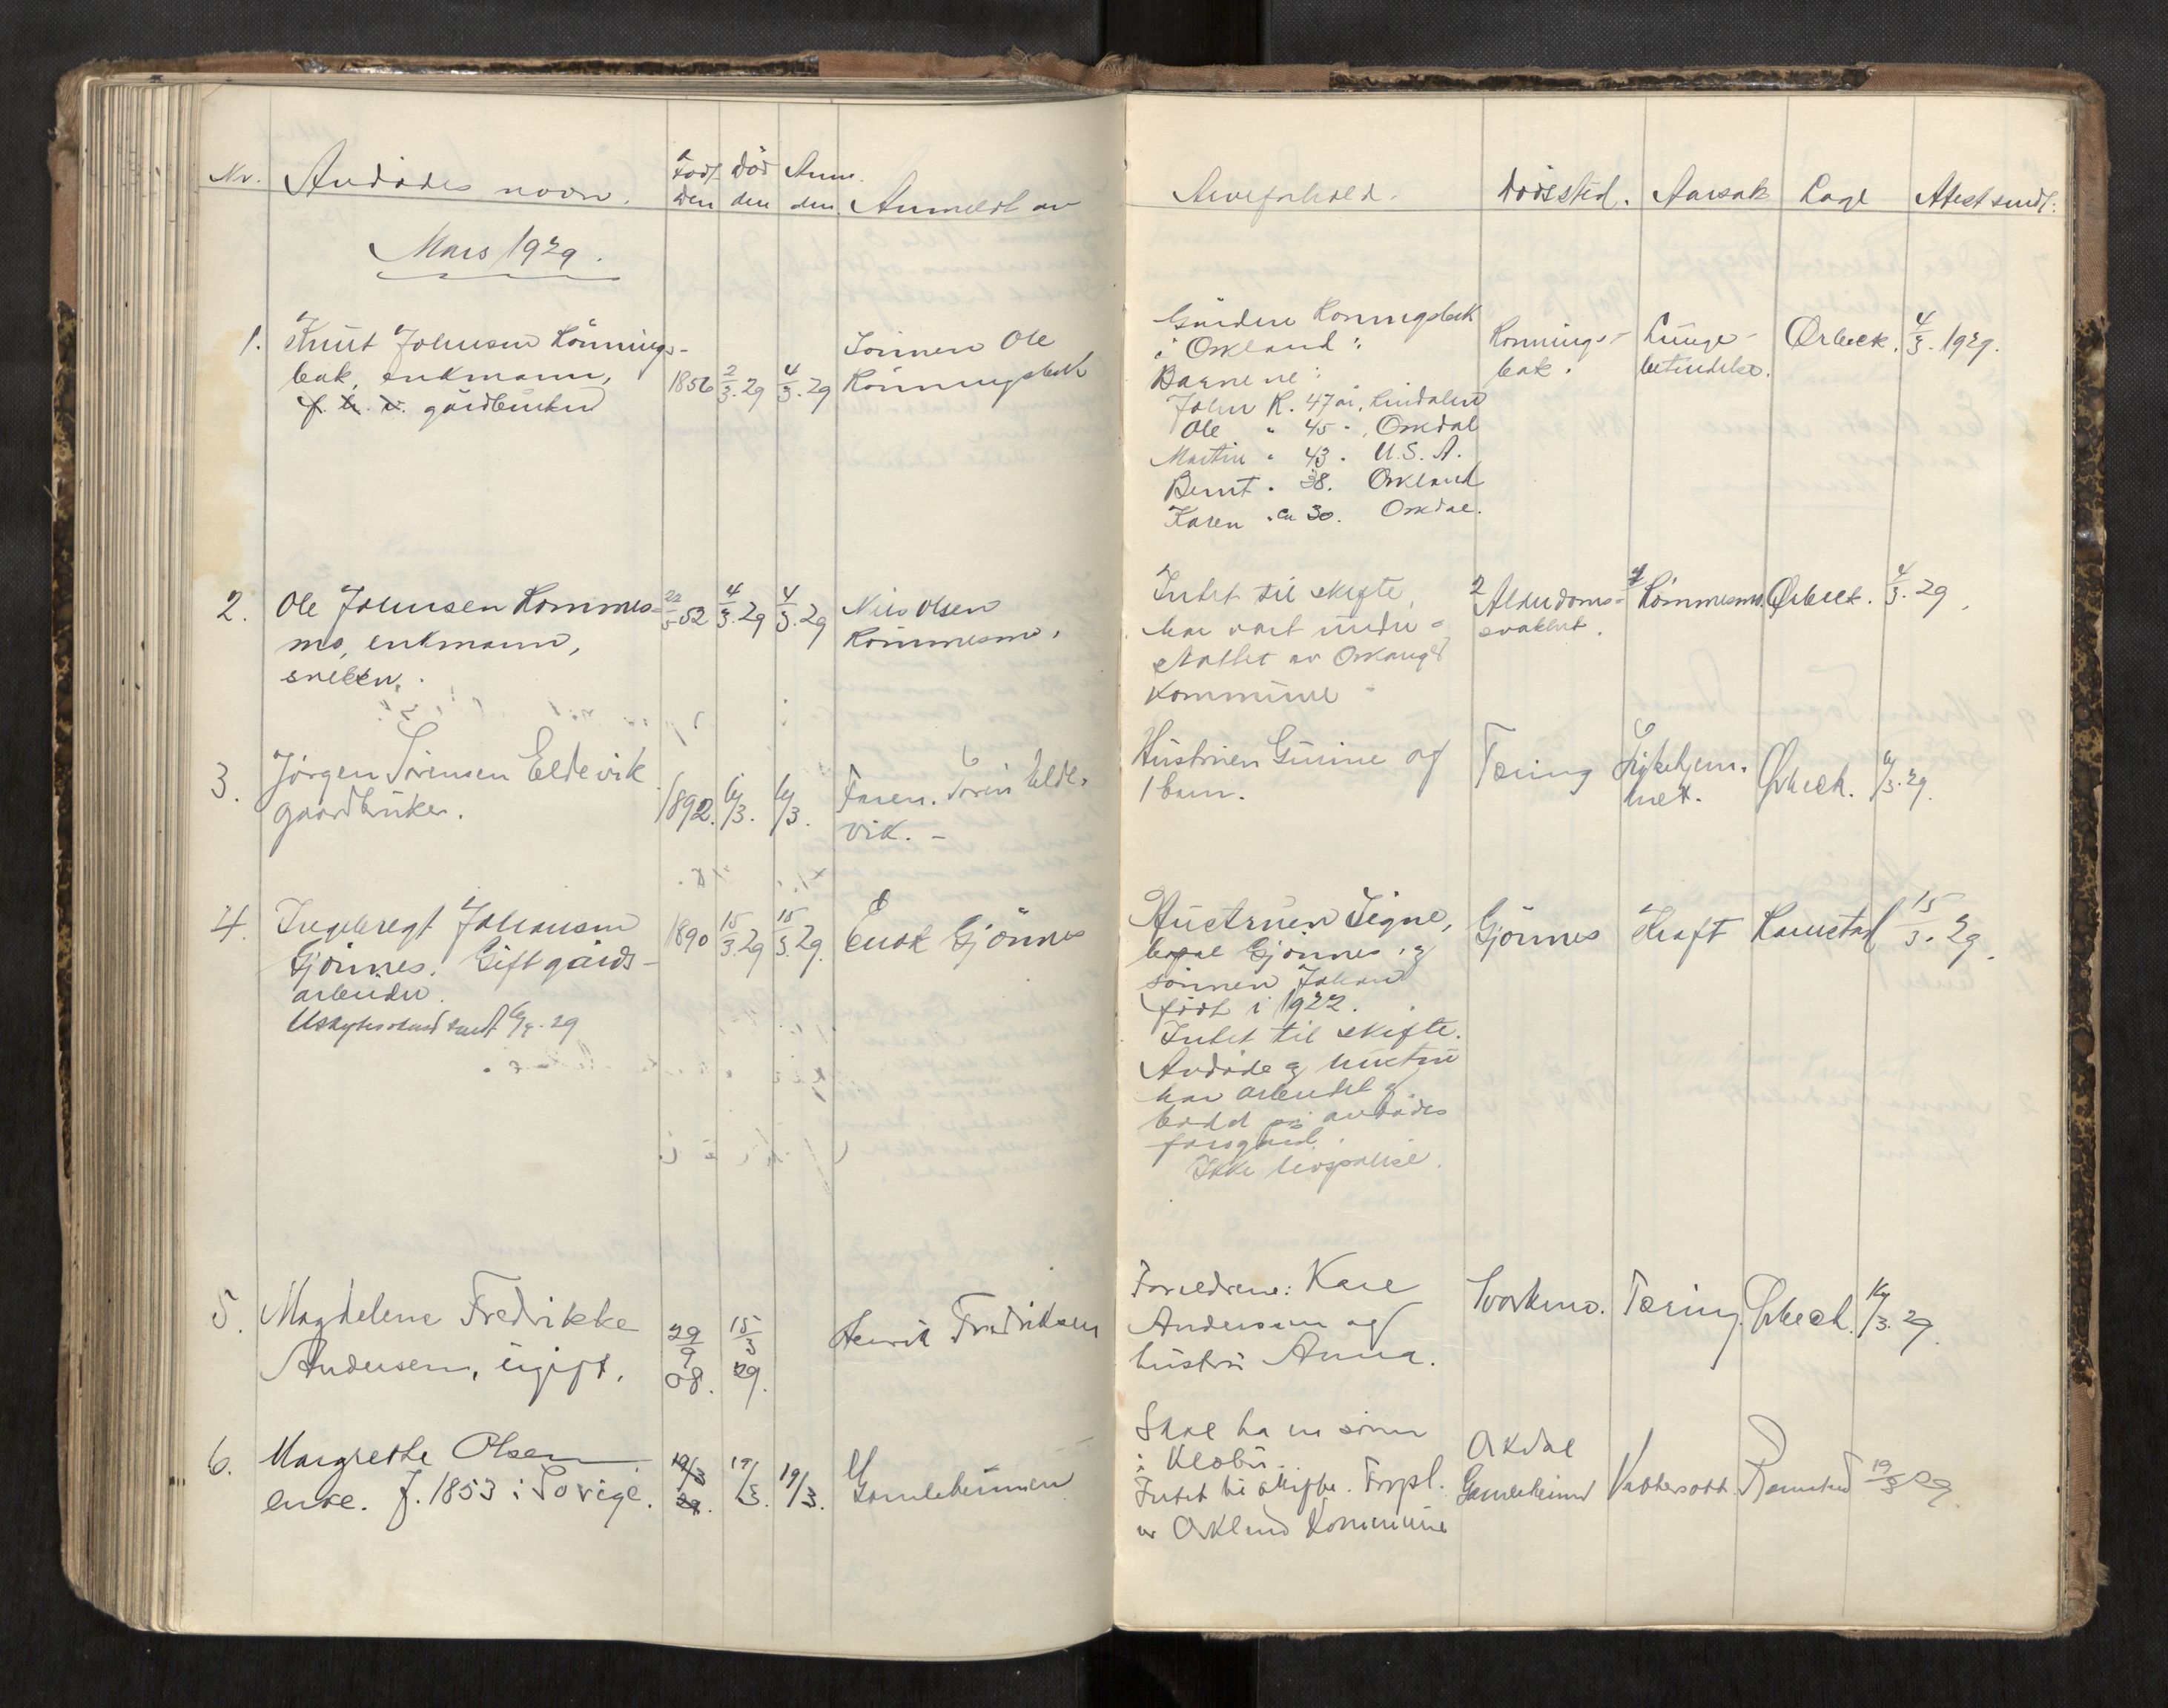 Nr. Avdødes navn. Født den Død den Anm. den Anmeldt av
Mars 1929.
1. Knut Johnsen Rønnings-
bak, enkmann,
gårdbruker
1856 2/3.29 4/3.29
Sønnen Ole
Rønningsbak
2. Ole Johnsen Rømmes-
mo, enkmann,
snekker.
22/5 52 4/3.29 4/3.29
Nils Olsen
Rømmesmo.
3. Jørgen Sørensen Eldevik
gaardbruker.
1892. 6/3. 6/3.
Faren. Søren Elde-
vik. -
4. Ingebregt Johansen
Gjønnes. Gift gårds-
arbeider.
1890 15/3.29 15/3.29.
Enok Gjønnes
5. Magdelene Fredrikke
Andersen, ugift.
29/9 08. 15/3 29.
Henrik Fredriksen
6. Margrethe Olsen
enke. f. 1853 i Sverige.
19/3 29. 19/3. 19/3.
Gamleheimen
Arveforhold. Dødssted. Aarsak Læge Attest sendt:
Gården Ronningsbak
i Orkland:
Barnene:
John R. 47 år, Lindalen
Ole " 45 - , Orkdal
Martin " 43 . U.S.A.
Bernt . 38. Orkland
Karen . ca 30. Orkdal.
Ronnings-
bak.
Lunge-
betendelse.
Ørbeck. 4/3. 1929.
Intet til skifte,
har vært under-
støttet av Orkanger
Kommune
2 Alderdoms-
svakhet.
1 Rømmesmo. Ørbeck. 4/3. 29.
Hustruen Gurine og
1 barn.
Tæring Sykehjem-
met. Ørbeck. 6/3. 29.
Hustruen Signe,
bopæl Gjønnes, og
sønnen Johan
født i 1922.
Intet til skifte.
Avdøde og hustru
har arbeidet og
bodd på avdødes
farsgård.
Gjønnes Kræft Ramstad 15/3. 29.
Foreldrene: Kare
Andersen og
hustru Anna.
Svorkmo. Tæring Ørbeck. 16/3. 29.
Skal ha en sønn
i Klæbu.
Intet til skifte. Forpl.
av Orkland Kommune
Orkdal
Gamleheimen Vattersott. Ramstad 19/3 29.